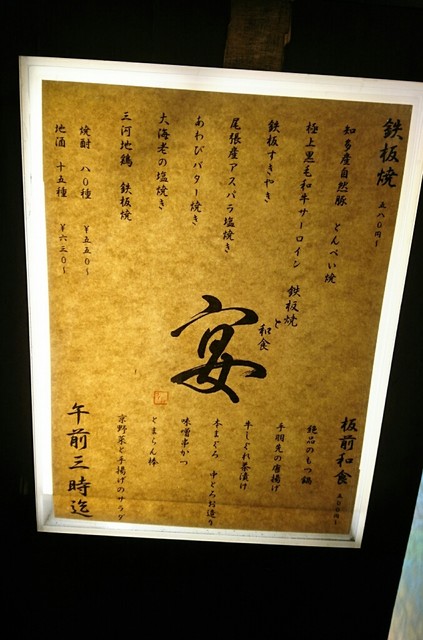 鉄板焼 五八〇円〜
知多産自然豚 とんぺい焼
極上黒毛和牛サーロイン
鉄板すきやき
尾張産アスパラ塩焼き
あわびバター焼き
大海老の塩焼き
三河地鶏 鉄板焼
焼酎 八〇種 ¥五五〇〜
地酒 十五種 ¥六三〇〜
鉄板焼
と
和食
宴
板前和食
絶品のもつ鍋
手羽先の唐揚げ
牛しぐれ茶漬け
本まぐろ 中とろお造り
味噌串かつ
とまらん棒
京野菜と手揚げのサラダ
午前三時迄